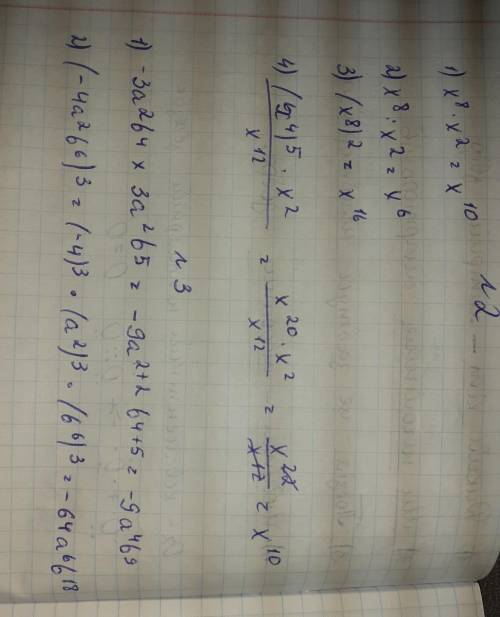 №2
1) x⁸ · x² = x¹⁰
2) x⁸ : x² = x⁶
3) (x⁸)² = x¹⁶
4) (x⁴)⁵ · x² / x¹² = x²⁰ · x² / x¹² = x²² / x¹² = x¹⁰
№3
1) -3a²b⁴ × 3a²b⁵ = -9a²⁺²b⁴⁺⁵ = -9a⁴b⁹
2) (-4a²b⁶)³ = (-4)³ · (a²)³ · (b⁶)³ = -64a⁶b¹⁸